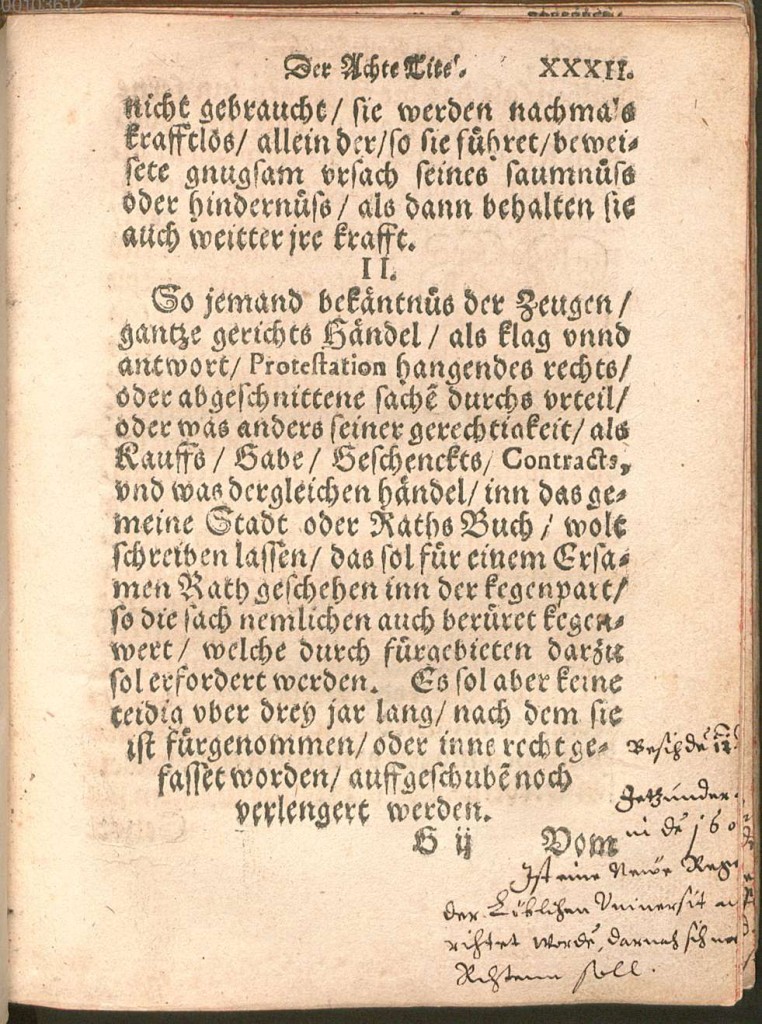 00103612
Der Achte Tite'. XXXII.
nicht gebraucht/ sie werden nachma's
krafftlos/ allein der/so sie führet/bewei-
sete gnugsam vrsach seines saumnüss
oder hindernüss/ als dann behalten sie
auch weitter jre krafft.
II.
So jemand bekäntnüs der Zeugen/
gantze gerichts Händel/ als klag vnnd
antwort/ Protestation hangendes rechts/
oder abgeschnittene sachẽ durchs vrteil/
oder was anders seiner gerechtigkeit/ als
Kauffs/ Gabe/ Geschenckts/ Contracts,
vnd was dergleichen händel/ inn das ge-
meine Stadt oder Raths Buch/ wolt
schreiben lassen/ das sol für einem Ersa-
men Rath geschehen inn der kegenpart/
so die sach nemlichen auch berüret kegen-
wert/ welche durch fürgebieten darzu
sol erfordert werden. Es sol aber keine
teidig vber drey jar lang/ nach dem sie
ist fürgenommen/ oder inns recht ge-
fasset worden/ auffgeschubẽ noch
verlengert werden.
G ij Vom
Jetzunder
in dẽ 160
Ist eine Newe
der Löblichen Vniversit
richtet wordẽ, darnach sich
Richtenn soll.